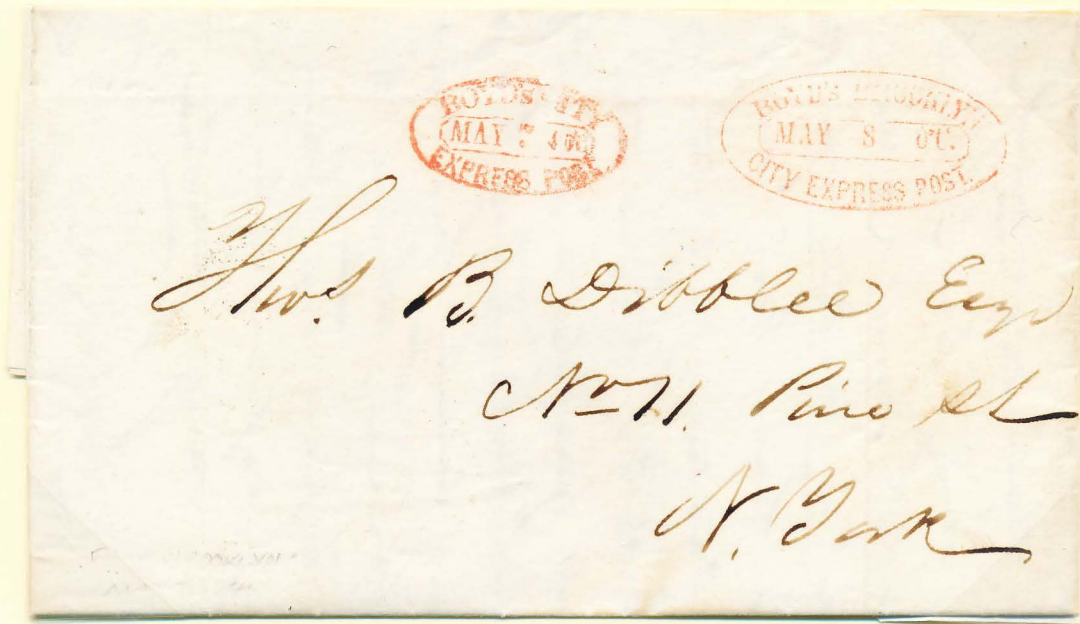 BOYD'S CITY
MAY 7
EXPRESS POST
BOYD'S BROOKLYN
MAY 8
CITY EXPRESS POST
Thos. B. Dibblee Esqr
No 11. Pine St
N. York